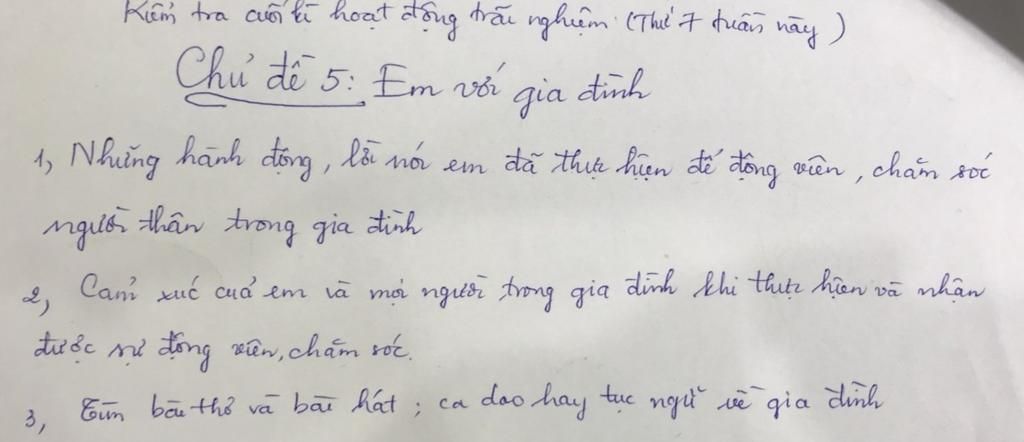 Kiểm tra cuối kì hoạt động trải nghiệm (Thứ 7 tuần này)
Chủ đề 5: Em với gia đình
1, Những hành động, lời nói em đã thực hiện để động viên, chăm sóc
người thân trong gia đình
2, Cảm xúc của em và mọi người trong gia đình khi thực hiện và nhận
được sự động viên, chăm sóc.
3, Tìm bài thơ và bài hát; ca dao hay tục ngữ về gia đình